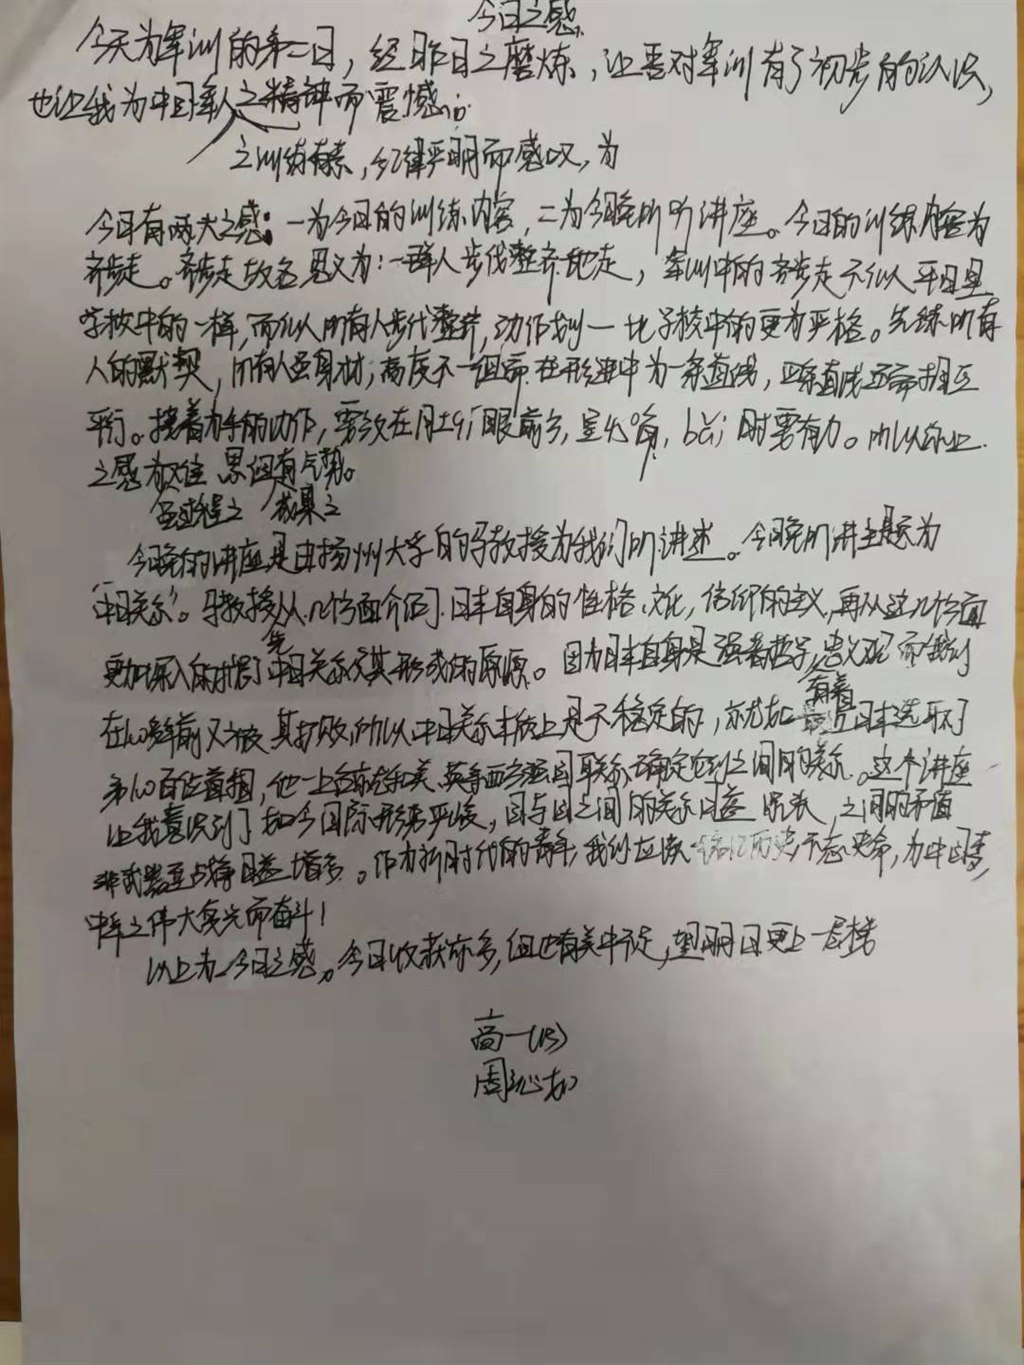 今日之感
今天为军训的第二日，经昨日之磨炼，让吾对军训有了初步的认识，
也让我为中国军人之精神而震撼。
之训练有素，纪律严明而感叹，为
今日有两大之感：一为今日的训练内容，二为今晚所听讲座。今日的训练内容为
齐步走。齐步走故名思义为：一群人步伐整齐地走，军训中的齐步走不似平日里
学校中的一样，而似所有人步伐整齐，动作划一比学校中的更为严格。先练所有
人的默契，所有人虽身材；高度不一但需在形进中为一条直线，且条直线还需相互
平行。接着为手的动作，需
之感为 累但有气势。
虽过程之 成果之
今晚的讲座是由扬州大学的马教授为我们所讲述。今晚所讲主题为
“中日关系”。马教授从几个方面介绍了日本自身的性格、文化，信仰的主义，再从这几个方面
更加深入的 了中日关系及其形成的原源。因为日本自身是强者哲学
先
有着
在 年前又被其打败，所以中日关系本质上是不稳定的，亦尤如 日本选取了
第100百位首相，他一上台 和美、英等西方强国联系，确定 之间的关系。这个讲座
让我意识到了如今国际形势严峻，国与国之间的关系日益 ，之间的矛盾
战争日益增多。作为新时代的青年，我们应该铭记历史，不忘使命，为中国梦，
中华之伟大复兴而奋斗！
以上为今日之感。今日收获亦多，但也有美中不足，望明日更上一层楼
高一(13)
周沁